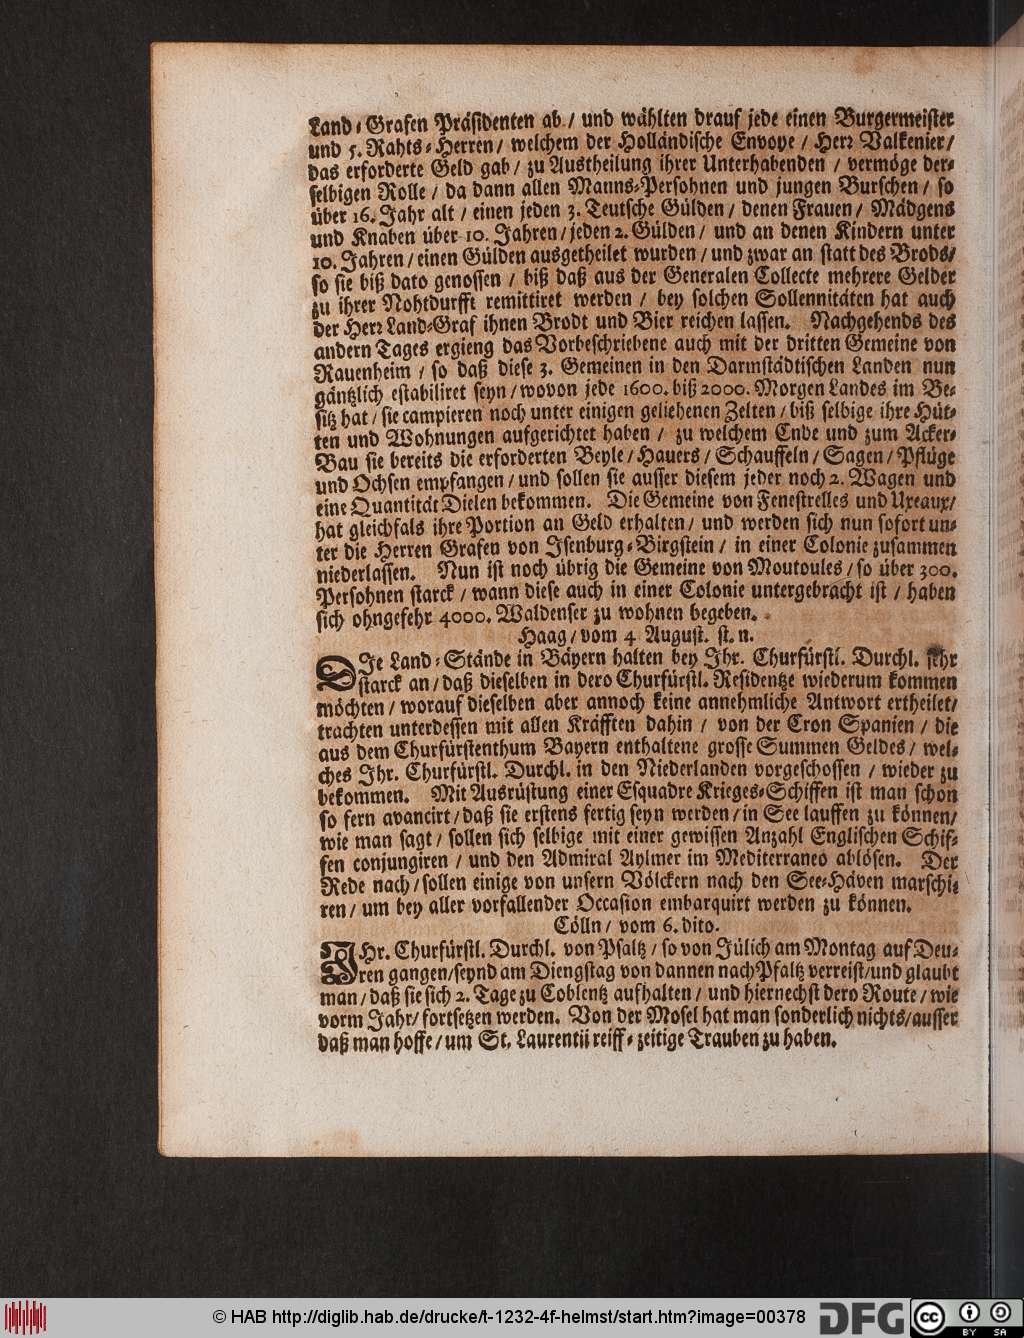 Land-Grafen Präsidenten ab / und wählten drauf jede einen Burgermeister
und 5. Rahts-Herren / welchem der Holländische Envoye / Herr Valkenier /
das erforderte Geld gab / zu Austheilung ihrer Unterhabenden / vermöge der-
selbigen Rolle / da dann allen Manns-Persohnen und jungen Burschen / so
über 16. Jahr alt / einen jeden 3. Teutsche Gülden / denen Frauen / Mädgens
und Knaben über 10. Jahren / jeden 2. Gülden / und an denen Kindern unter
10. Jahren / einen Gülden ausgetheilet wurden / und zwar an statt des Brods /
so sie biß dato genossen / biß daß aus der Generalen Collecte mehrere Gelder
zu ihrer Nohtdurfft remittiret werden / bey solchen Sollennitäten hat auch
der Herr Land-Graf ihnen Brodt und Bier reichen lassen. Nachgehends des
andern Tages ergieng das Vorbeschriebene auch mit der dritten Gemeine von
Rauenheim / so daß diese 3. Gemeinen in den Darmstädtischen Landen nun
gäntzlich estabiliret seyn / wovon jede 1600. biß 2000. Morgen Landes im Be-
sitz hat / sie campieren noch unter einigen geliehenen Zelten / biß selbige ihre Hüt-
ten und Wohnungen aufgerichtet haben / zu welchem Ende und zum Acker-
Bau sie bereits die erforderten Beyle / Hauers / Schauffeln / Sagen / Pflüge
und Ochsen empfangen / und sollen sie ausser diesem jeder noch 2. Wagen und
eine Quantität Dielen bekommen. Die Gemeine von Fenestrelles und Uxeaux /
hat gleichfals ihre Portion an Geld erhalten / und werden sich nun sofort un-
ter die Herren Grafen von Isenburg-Birgstein / in einer Colonie zusammen
niederlassen. Nun ist noch übrig die Gemeine von Moutoules / so über 300.
Persohnen starck / wann diese auch in einer Colonie untergebracht ist / haben
sich ohngefehr 4000. Waldenser zu wohnen begeben.
Haag / vom 4 August. st. n.
DIe Land-Stände in Bäyern halten bey Ihr. Churfürstl. Durchl. sehr
starck an / daß dieselben in dero Churfürstl. Residentze wiederum kommen
möchten / worauf dieselben aber annoch keine annehmliche Antwort ertheilet /
trachten unterdessen mit allen Kräfften dahin / von der Cron Spanien / die
aus dem Churfürstenthum Bayern enthaltene grosse Summen Geldes / wel-
ches Ihr. Churfürstl. Durchl. in den Niederlanden vorgeschossen / wieder zu
bekommen. Mit Ausrüstung einer Esquadre Krieges-Schiffen ist man schon
so fern avancirt / daß sie erstens fertig seyn werden / in See lauffen zu können /
wie man sagt / sollen sich selbige mit einer gewissen Anzahl Englischen Schif-
fen conjungiren / und den Admiral Aylmer im Mediterraneo ablösen. Der
Rede nach / sollen einige von unsern Völckern nach den See-Häven marschi-
ren / um bey aller vorfallender Occasion embarquirt werden zu können.
Cölln / vom 6. dito.
IHr. Churfürstl. Durchl. von Psaltz / so von Jülich am Montag auf Deu-
ren gangen / seynd am Diengstag von dannen nach Pfaltz verreist / und glaubt
man / daß sie sich 2. Tage zu Coblentz aufhalten / und hiernechst dero Route / wie
vorm Jahr / fortsetzen werden. Von der Mosel hat man sonderlich nichts / ausser
daß man hoffe / um St. Laurentii reiff-zeitige Trauben zu haben.
© HAB http://diglib.hab.de/drucke/t-1232-4f-helmst/start.htm?image=00378
DFG
cc
BY SA